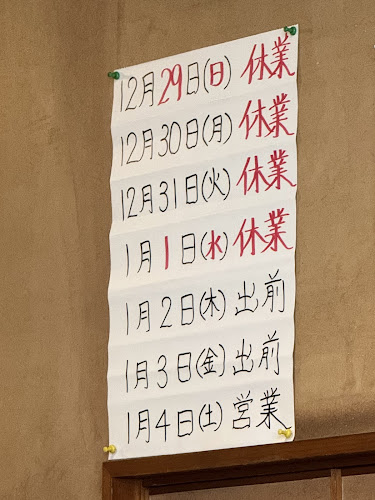 12月29日(日) 休業
12月30日(月) 休業
12月31日(火) 休業
1月1日(水) 休業
1月2日(木) 出前
1月3日(金) 出前
1月4日(土) 営業